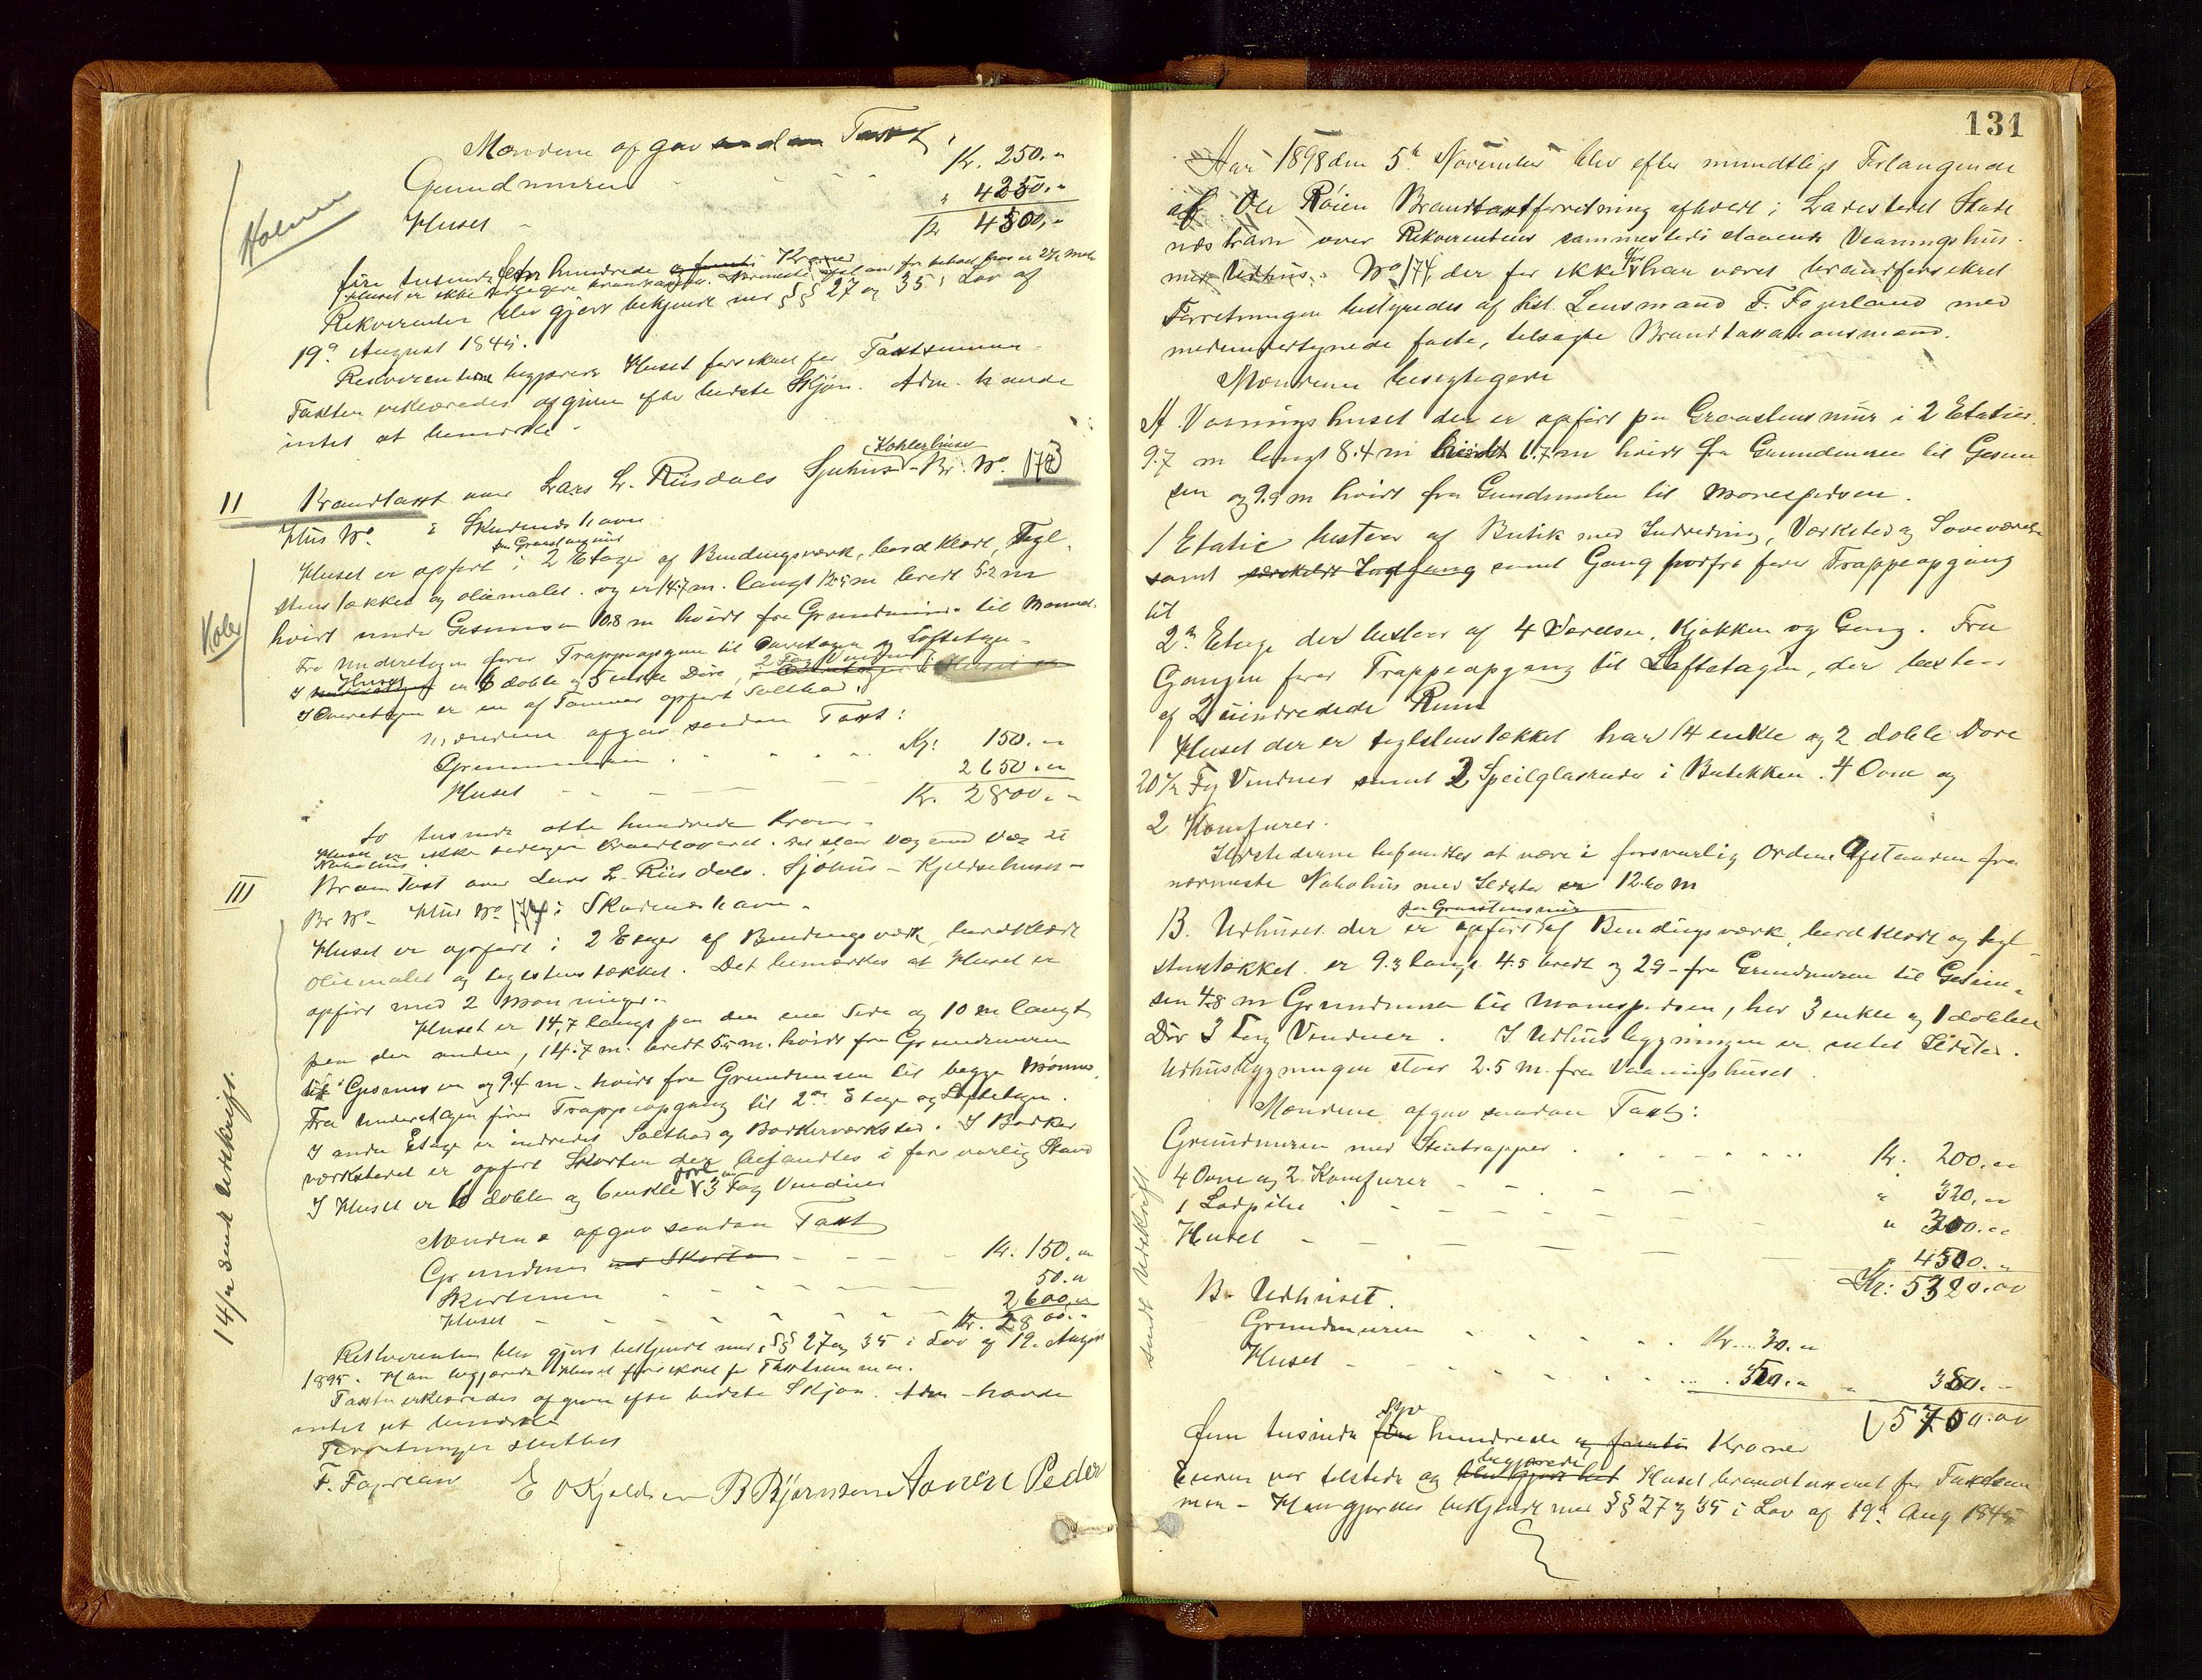 Mændene afgav saadan Taxt
Grundmuren Kr. 250.-
Huset - " 4250.-
Kr 4500,-
Holmen
fire tusinde fem hundrede og femti Kroner
Huset er ikke
Rekvirenten blev gjort bekjendt med §§ 27 og 35 i Lov af
19de August 1845.
Rekvirenten begjærede Huset forsikret for Taxtsummen
Taxten erklæredes afgiven efter bedste Skjøn. Adm. havde
intet at bemærke.
II Brandtaxt over Lars L. Riisdals Sjøhus - Br. No. 173
Hus No. i Skudeneshavn
paa Graastensmur
Huset er opført i 2 Etager af Bindingsværk, bordklædt, Tegl-
stenstækket og oliemalet. og er 14.7 m. langt 12.5 m bredt 5.2 m
høidt under Gesimsen 10.8 m høidt fra Grundmuren til Mønet.
Fra Underetagen fører Trappeopgang til Overetagen og Loftetagen.
I Huset er 6 doble og 5 enkle Døre, 2 Fag Vinduer
I Overetagen er en af Tømmer opført Saltbod.
Mændene afgav saadan Taxt:
Grundmuren . . . . . Kr: 150.-
Huset - - - - 2650.-
Kr. 2800.-
To tusinde otte hundrede Kroner
Huset er ikke tidligere brandtaxeret. Det staar Væg med Væg til
Nabohus.
III Brandtaxt over Lars L. Riisdals. Sjøhus - Kjeldsehuset -
Br No - Hus No 174 i Skudeneshavn.
Huset er opført i 2 Etager af Bindingsværk, bordklædt
oliemalet og teglstenstækket. Det bemærkes at Huset er
opført med 2 Mønninger.
Huset er 14,7 langt paa den ene Side og 10 m langt
paa den anden, 14.7 m. bredt 5.5 m. høidt fra Grundmuren
til Gesimsen og 9.4 m. høidt fra Grundmuren til begge Mønner.
Fra Underetagen fører Trappeopgang til 2den Etage og Loftetagen.
I anden Etage er indredet Saltbod og Bødkerværksted. I Bødker
værkstedet er opført Skorsten der befandtes i forsvarlig Stand
I Huset er 6 doble og 6 enkle Døre 3 Fag Vinduer
Mændene afgav saadan Taxt
Grundmur med Skorsten - - - Kr. 150.-
Skorstenen - - - 50.-
Huset - - - 2600.-
Kr. 2800.-
Rekvirenten blev gjort bekjendt med §§ 27 og 35 i Lov af 19. August
1845. Han begjærede Huset forsikret for Taxtsummen.
Taxten erklæredes afgiven efter bedste Skjøn. Adm. havde
intet at bemærke
Forretningen sluttet
F. Fogerland E O Kjeldsen B Bjørnsen Aanen Peder
14/11 sendt Udskrift.
131
Aar 1898 den 5te November blev efter mundtlig Forlangende
af Ole Røien Brandtaxtforretning afholdt i Ladestedet Skude
neshavn over Rekvirentens sammesteds staaende Vaaningshus
med Udhus. No 174, der før ikke har været brandforsikret
Forretningen bestyredes af Kst. Lensmand F. Fogerland med
medundertegnede faste, tilsagte Brandtaxationsmænd.
Mændene besigtigede
A Vaaningshuset der er opført paa Graastensmur i 2 Etager.
9.7 m langt 8.4 m bredt 6.7 m høidt fra Grundmuren til Gesim
sen og 9.9 m høidt fra Grundmuren til Mønespidsen.
1 Etage bestaar af Butik med Indredning, Værksted og Soveværelse
samt særskildt Indgang samt Gang hvorfra fører Trappeopgang
til
2den Etage der bestaar af 4 Værelser, Kjøkken og Gang. Fra
Gangen fører Trappeopgang til Loftetagen, der bestaar
af 2 uindredede Rum
Huset der er teglstenstækket har 14 enkle og 2 doble Døre
20 1/2 Fag Vinduer samt 2 Speilglasruder i Butikken. 4 Ovne og
2 Komfurer.
Ildstederne befandtes at være i forsvarlig Orden. Afstanden fra
nærmeste Nabohus med Ildsted er 12.60 m
paa Graastensmur
B. Udhuset der er opført af Bindingsværk, bordklædt og tegl-
stenstækket. er 9.3 langt 4.5 bredt og 2.9 - fra Grundmuren til Gesim-
sen 4.8 m Grundmuren til Mønespidsen, har 3 enkle og 1 dobbel
Dør 3 Fag Vinduer. I Udhusbygningen er intet Ildsted.
Udhusbygningen staar 2.5 m fra Vaaningshuset
Mændene afgav saadan Taxt:
Grundmuren med Stentrapper . . . . Kr. 200.-
4 Ovne og 2 Komfurer - - - " 320.-
1 - - - " 300.-
Huset - - - " 4500.-
Kr: 5320.00
B. Udhuset.
Grundmuren . . . . Kr. 30.-
Huset - . . . . 350.- " 380.-
5700.00
fem tusinde syv hundrede og femti Kroner
Eieren var tilstede og begjærede Huset brandtaxeret for Taxtsum
men - Han gjordes bekjendt med §§ 27 og 35 i Lov af 19de Aug 1845
sendt Udskrift